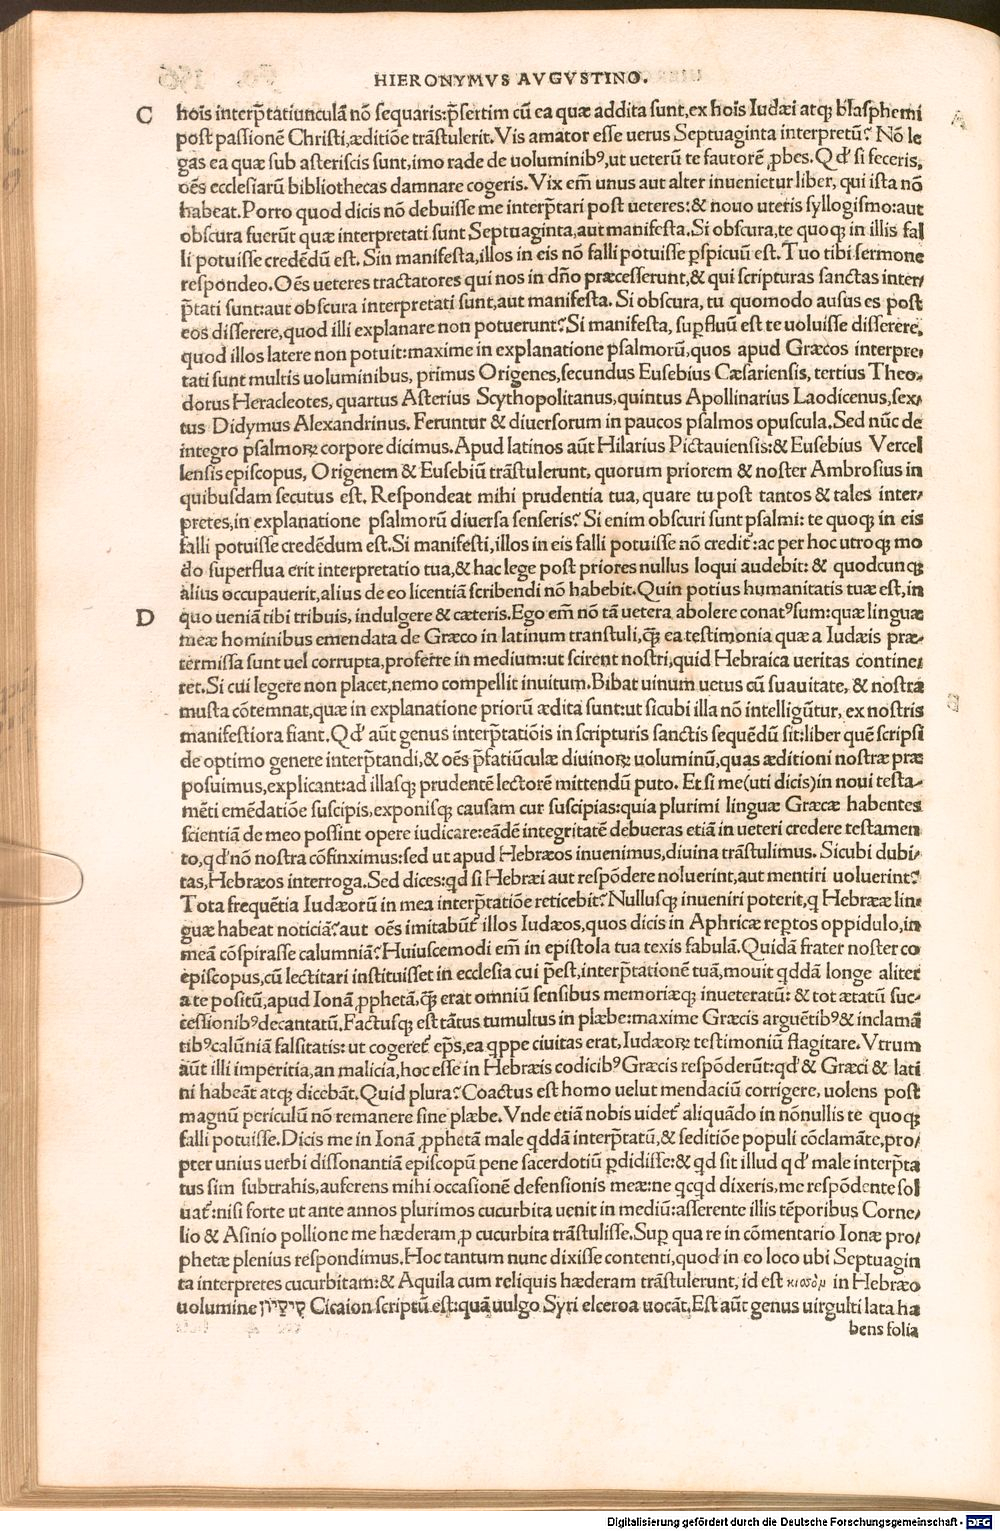 HIERONYMVS AVGVSTINO.
C hoı̄s interp̄tatiunculā nō sequaris:p̄sertim cū ea quæ addita sunt,ex hoı̄s Iudæi atq; blasphemi
post passionē Christi,æditiōe trāstulerit.Vis amator esse uerus Septuaginta interpretū? Nō le
gas ea quæ sub asteriscis sunt,imo rade de uoluminibꝰ,ut ueterū te fautorē ꝓbes.Qd' si feceris,
oēs ecclesiarū bibliothecas damnare cogeris.Vix em̄ unus aut alter inuenietur liber, qui ista nō
habeat.Porro quod dicis nō debuisse me interp̄tari post ueteres:& nouo uteris syllogismo:aut
obscura fuerūt quæ interpretati sunt Septuaginta,aut manifesta.Si obscura,te quoq; in illis fal
li potuisse credēdū est. Sin manifesta,illos in eis nō falli potuisse ꝑspicuū est.Tuo tibi sermone
respondeo.Oēs ueteres tractatores qui nos in dn̄o præcesserunt,& qui scripturas sanctas inter/
p̄tati sunt:aut obscura interpretati sunt,aut manifesta. Si obscura, tu quomodo ausus es post
eos disserere,quod illi explanare non potuerunt?Si manifesta, suꝑfluū est te uoluisse disserere,
quod illos latere non potuit:maxime in explanatione psalmorū,quos apud Græcos interpre/
tati sunt multis uoluminibus, primus Origenes,secundus Eusebius Cæsariensis, tertius Theo/
dorus Heracleotes, quartus Asterius Scythopolitanus,quintus Apollinarius Laodicenus,sex/
tus Didymus Alexandrinus. Feruntur & diuersorum in paucos psalmos opuscula. Sed nūc de
integro psalmoꝝ corpore dicimus.Apud latinos aūt Hilarius Pictauiensis:& Eusebius Vercel
lensis episcopus, Origenem & Eusebiū trāstulerunt, quorum priorem & noster Ambrosius in
quibusdam secutus est. Respondeat mihi prudentia tua, quare tu post tantos & tales inter/
pretes,in explanatione psalmorū diuersa senseris? Si enim obscuri sunt psalmi: te quoq; in eis
falli potuisse credēdum est.Si manifesti,illos in eis falli potuisse nō credit᷑:ac per hoc utroq; mo
do superflua erit interpretatio tua,& hac lege post priores nullus loqui audebit: & quodcunq;
alius occupauerit,alius de eo licentiā scribendi nō habebit.Quin potius humanitatis tuæ est,in
D quo ueniā tibi tribuis, indulgere & cæteris.Ego em̄ nō tā uetera abolere conatꝰsum:quæ linguæ
meæ hominibus emendata de Græco in latinum transtuli,q̄; ea testimonia quæ a Iudæis præ/
termissa sunt uel corrupta,proferre in medium:ut scirent nostri,quid Hebraica ueritas contine/
ret.Si cui legere non placet,nemo compellit inuitum.Bibat uinum uetus cū suauitate, & nostra
musta cōtemnat,quæ in explanatione priorū ædita sunt:ut sicubi illa nō intelligūtur, ex nostris
manifestiora fiant.Qd' aūt genus interp̄tatiōis in scripturis sanctis sequēdū sit:liber quē scripsi
de optimo genere interp̄tandi,& oēs p̄fatiūculæ diuinoꝝ uoluminū,quas æditioni nostræ præ
posuimus,explicant:ad illasq; prudentē lectorē mittendū puto. Et si me(uti dicis)in noui testa/
mēti emēdatiōe suscipis,exponisq; causam cur suscipias:quia plurimi linguæ Græcæ habentes
scientiā de meo possint opere iudicare:eādē integritatē debueras etiā in ueteri credere testamen
to,qd'nō nostra cōfinximus:sed ut apud Hebræos inuenimus,diuina trāstulimus. Sicubi dubi/
tas,Hebræos interroga.Sed dices:qd si Hebræi aut respōdere noluerint,aut mentiri uoluerint?
Tota frequētia Iudæorū in mea interp̄tatiōe reticebit?Nullusq; inueniri poterit,q Hebrææ lin/
guæ habeat noticiā?aut oēs imitabūt᷑ illos Iudæos,quos dicis in Aphricæ reptos oppidulo,in
meā cōspirasse calumniā?Huiuscemodi em̄ in epistola tua texis fabulā.Quidā frater noster co
episcopus,cū lectitari instituisset in ecclesia cui p̄est,interp̄tationē tuā,mouit qddā longe aliter
a te positū,apud Ionā ꝓphetā,q̄; erat omniū sensibus memoriæq; inueteratū: & tot ætatū suc/
cessionibꝰdecantatū.Factusq; est tātus tumultus in plæbe:maxime Græcis arguētibꝰ& inclamā
tibꝰcalūniā falsitatis: ut cogeret᷑ ep̄s,ea qppe ciuitas erat,Iudæoꝝ testimoniū flagitare.Vtrum
aūt illi imperitia,an malicia,hoc esse in Hebræis codicibꝰGræcis respōderūt:qd' & Græci & lati
ni habeāt atq; dicebāt.Quid plura?Coactus est homo uelut mendaciū corrigere, uolens post
magnū periculū nō remanere sine plæbe.Vnde etiā nobis uidet᷑ aliquādo in nōnullis te quoq;
falli potuisse.Dicis me in Ionā ꝓphetā male qddā interp̄tatū,& seditiōe populi cōclamāte,pro/
pter unius uerbi dissonantiā episcopū pene sacerdotiū ꝑdidisse:& qd sit illud qd' male interp̄ta
tus sim subtrahis,auferens mihi occasionē defensionis meæ:ne qcqd dixeris,me respōdente sol
uat᷑:nisi forte ut ante annos plurimos cucurbita uenit in mediū:asserente illis tēporibus Corne/
lio & Asinio pollione me hæderam,ꝓ cucurbita trāstulisse.Suꝑ qua re in cōmentario Ionæ pro/
phetæ plenius respondimus.Hoc tantum nunc dixisse contenti,quod in eo loco ubi Septuagin
ta interpretes cucurbitam:& Aquila cum reliquis hæderam trāstulerunt, id est κισσόμ in Hebræo
uolumine קיקיון Cicaion scriptū est:quā uulgo Syri elceroa uocāt.Est aūt genus uirgulti lata ha
bens folia
Digitalisierung gefördert durch die Deutsche Forschungsgemeinschaft - DFG